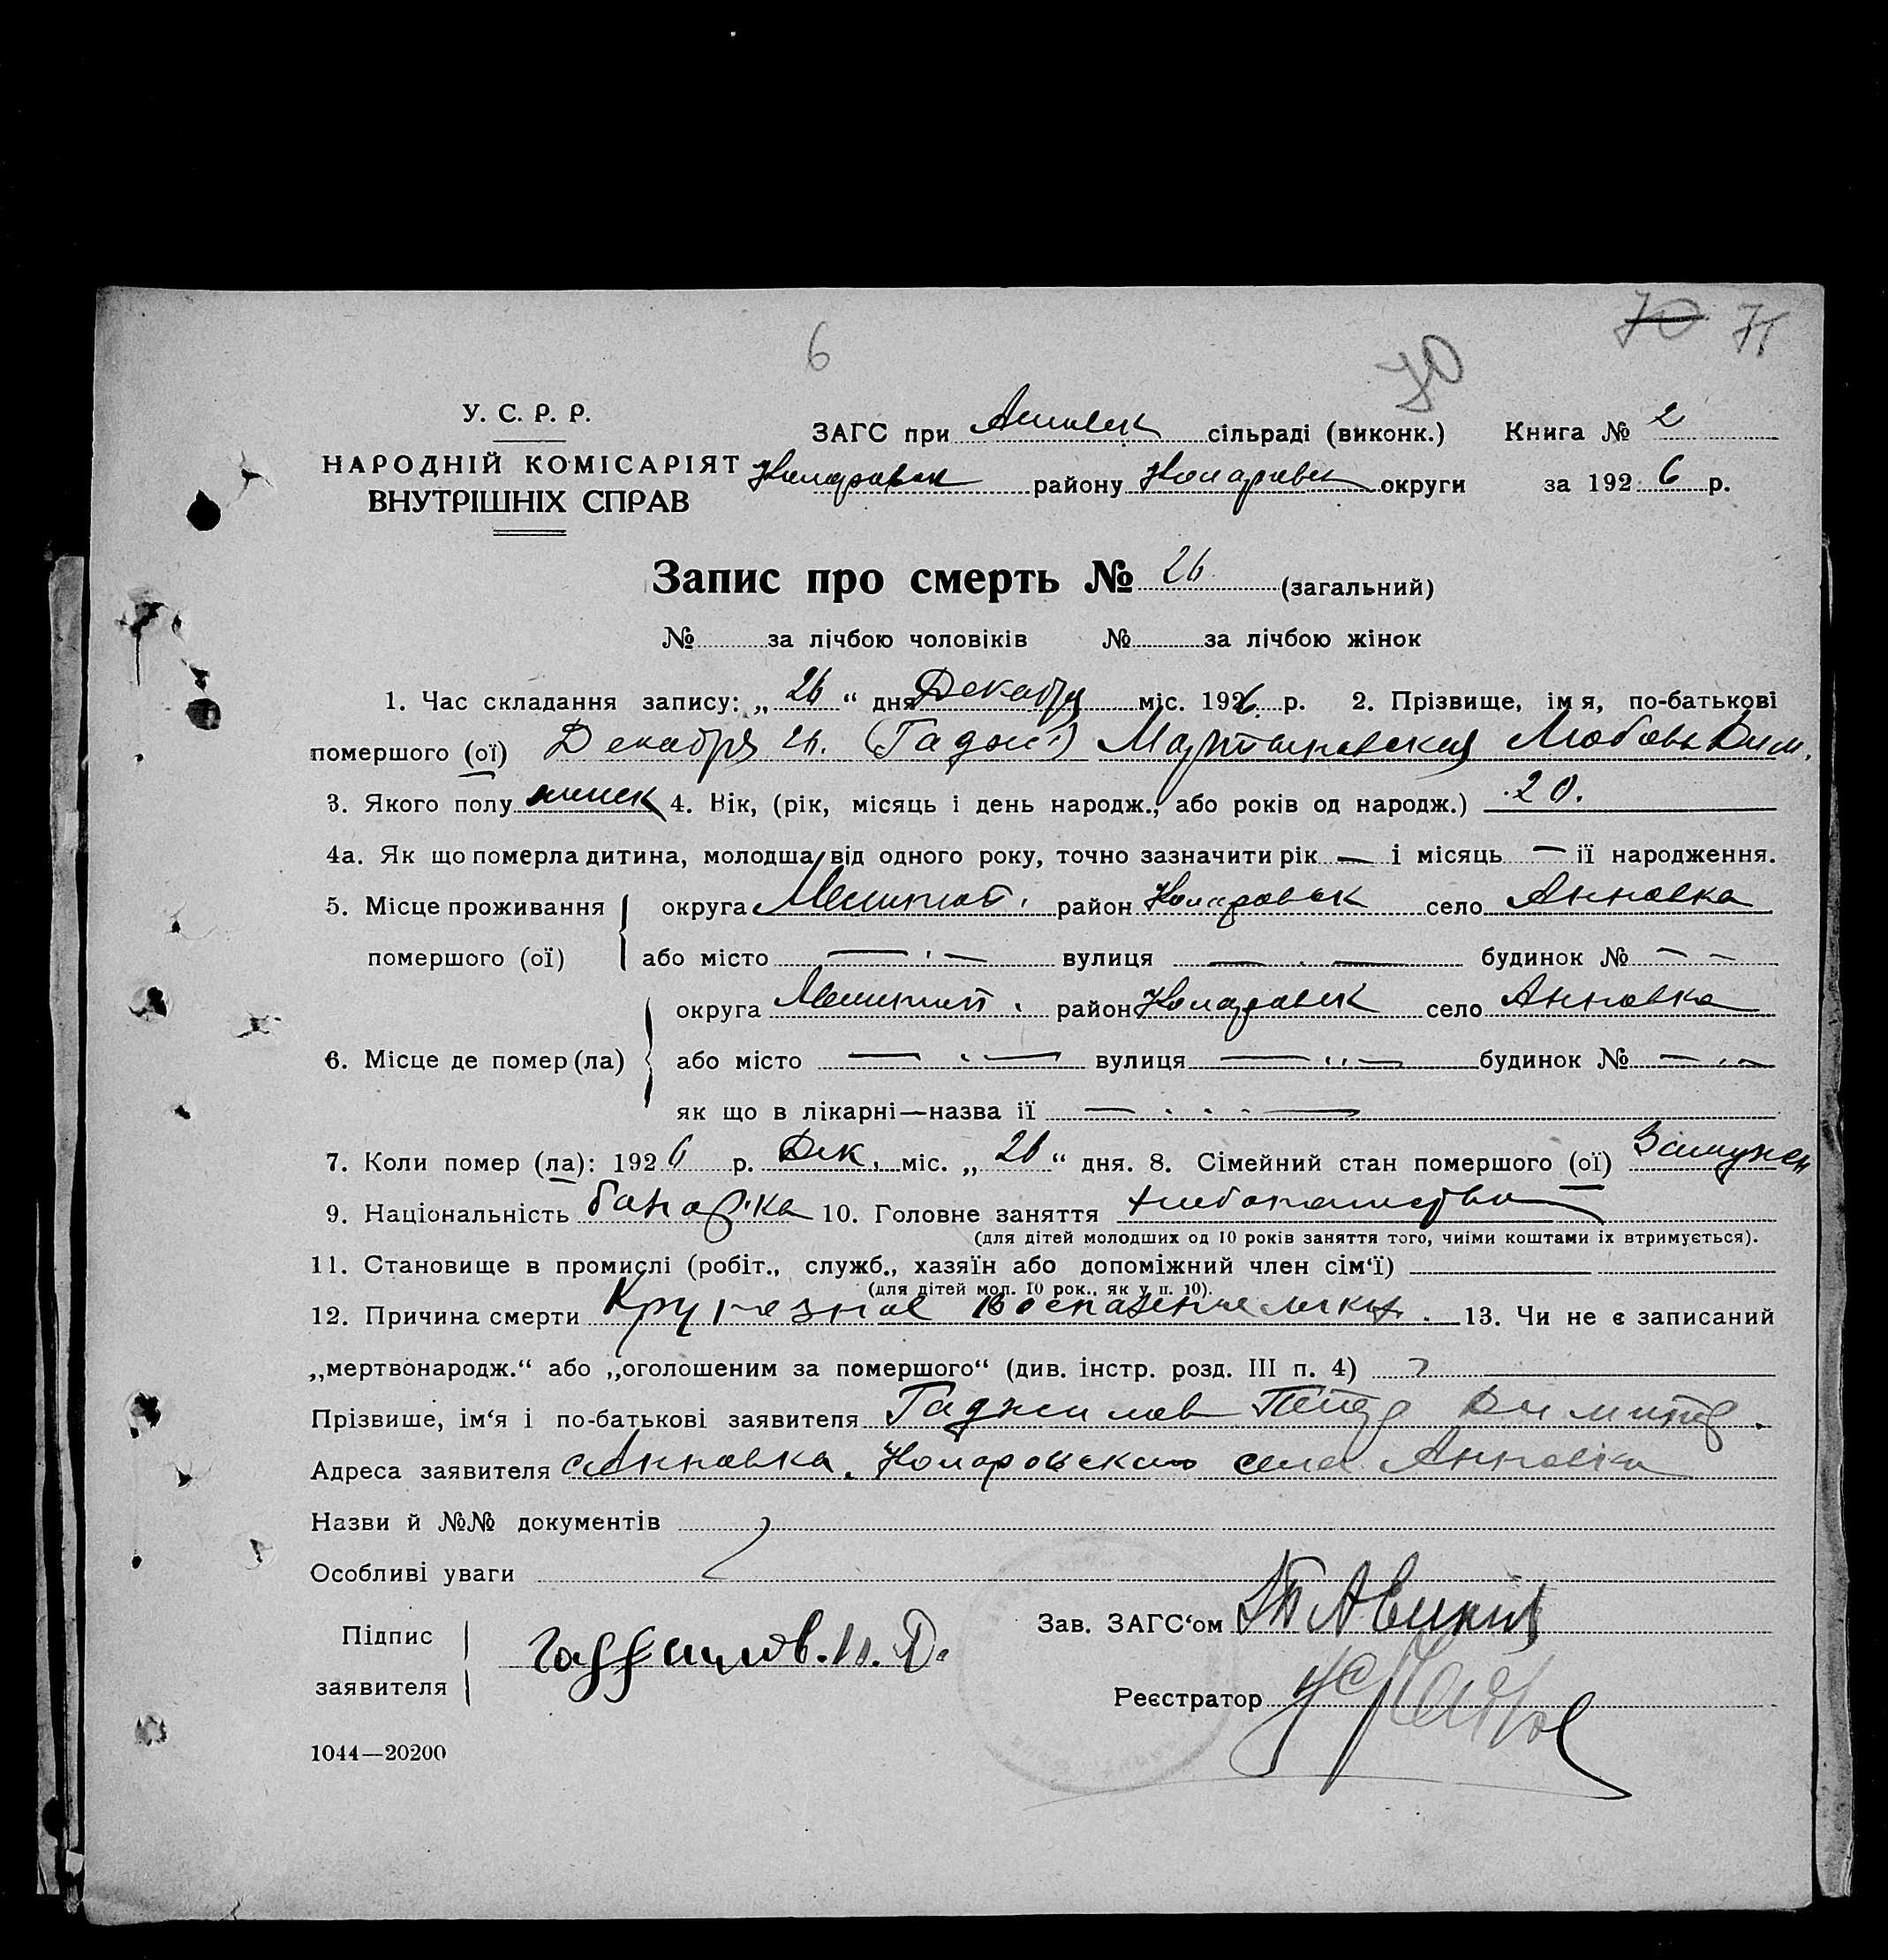 70 71
6 70
У. С. Р. Р.
ЗАГС при сільраді (виконк.) Книга № 2
НАРОДНІЙ КОМІСАРІЯТ
ВНУТРІШНІХ СПРАВ
Коларовск району Коларовск округи за 1926 р.
Запис про смерть № 26 (загальний)
№ за лічбою чоловіків № за лічбою жінок
1. Час складання запису: „ 26 “ дня Декабря міс. 1926 р. 2. Прізвище, імя, по-батькові
помершого (ої) Декабря 26. Любовь Дим.
3. Якого полу женск 4. Вік, (рік, місяць і день народж., або років од народж.) 20.
4а. Як що померла дитина, молодша від одного року, точно зазначити рік — і місяць — її народження.
5. Місце проживання округа Мелитоп. район Коларовск село Анновка
помершого (ої) або місто — вулиця — будинок № —
округа Мелитоп. район Коларовск село Анновка
6. Місце де помер (ла) або місто — вулиця — будинок № —
як що в лікарні—назва її —
7. Коли помер (ла): 1926 р. Дек. міс. „ 26 “ дня. 8. Сімейний стан помершого (ої) Замужем
9. Національність болгарка 10. Головне заняття хлебопашество
(для дітей молодших од 10 років заняття того, чиїми коштами їх втримується).
11. Становище в промислі (робіт., служб., хазяїн або допоміжний член сім‘ї)
(для дітей мол. 10 рок., як у п. 10).
12. Причина смерти Крупозное воспаление легких. 13. Чи не є записаний
„мертвонародж.“ або „оголошеним за помершого“ (див. інстр. розд. III п. 4)
Прізвише, ім‘я і по-батькові заявителя Гаджилов Петр Димитр.
Адреса заявителя с Анновка. Коларовского села Анновка
Назви й №№ документів
Особливі уваги
Підпис
заявителя
Гаджилов. П. Д.
Зав. ЗАГС‘ом
Реєстратор
1044—20200